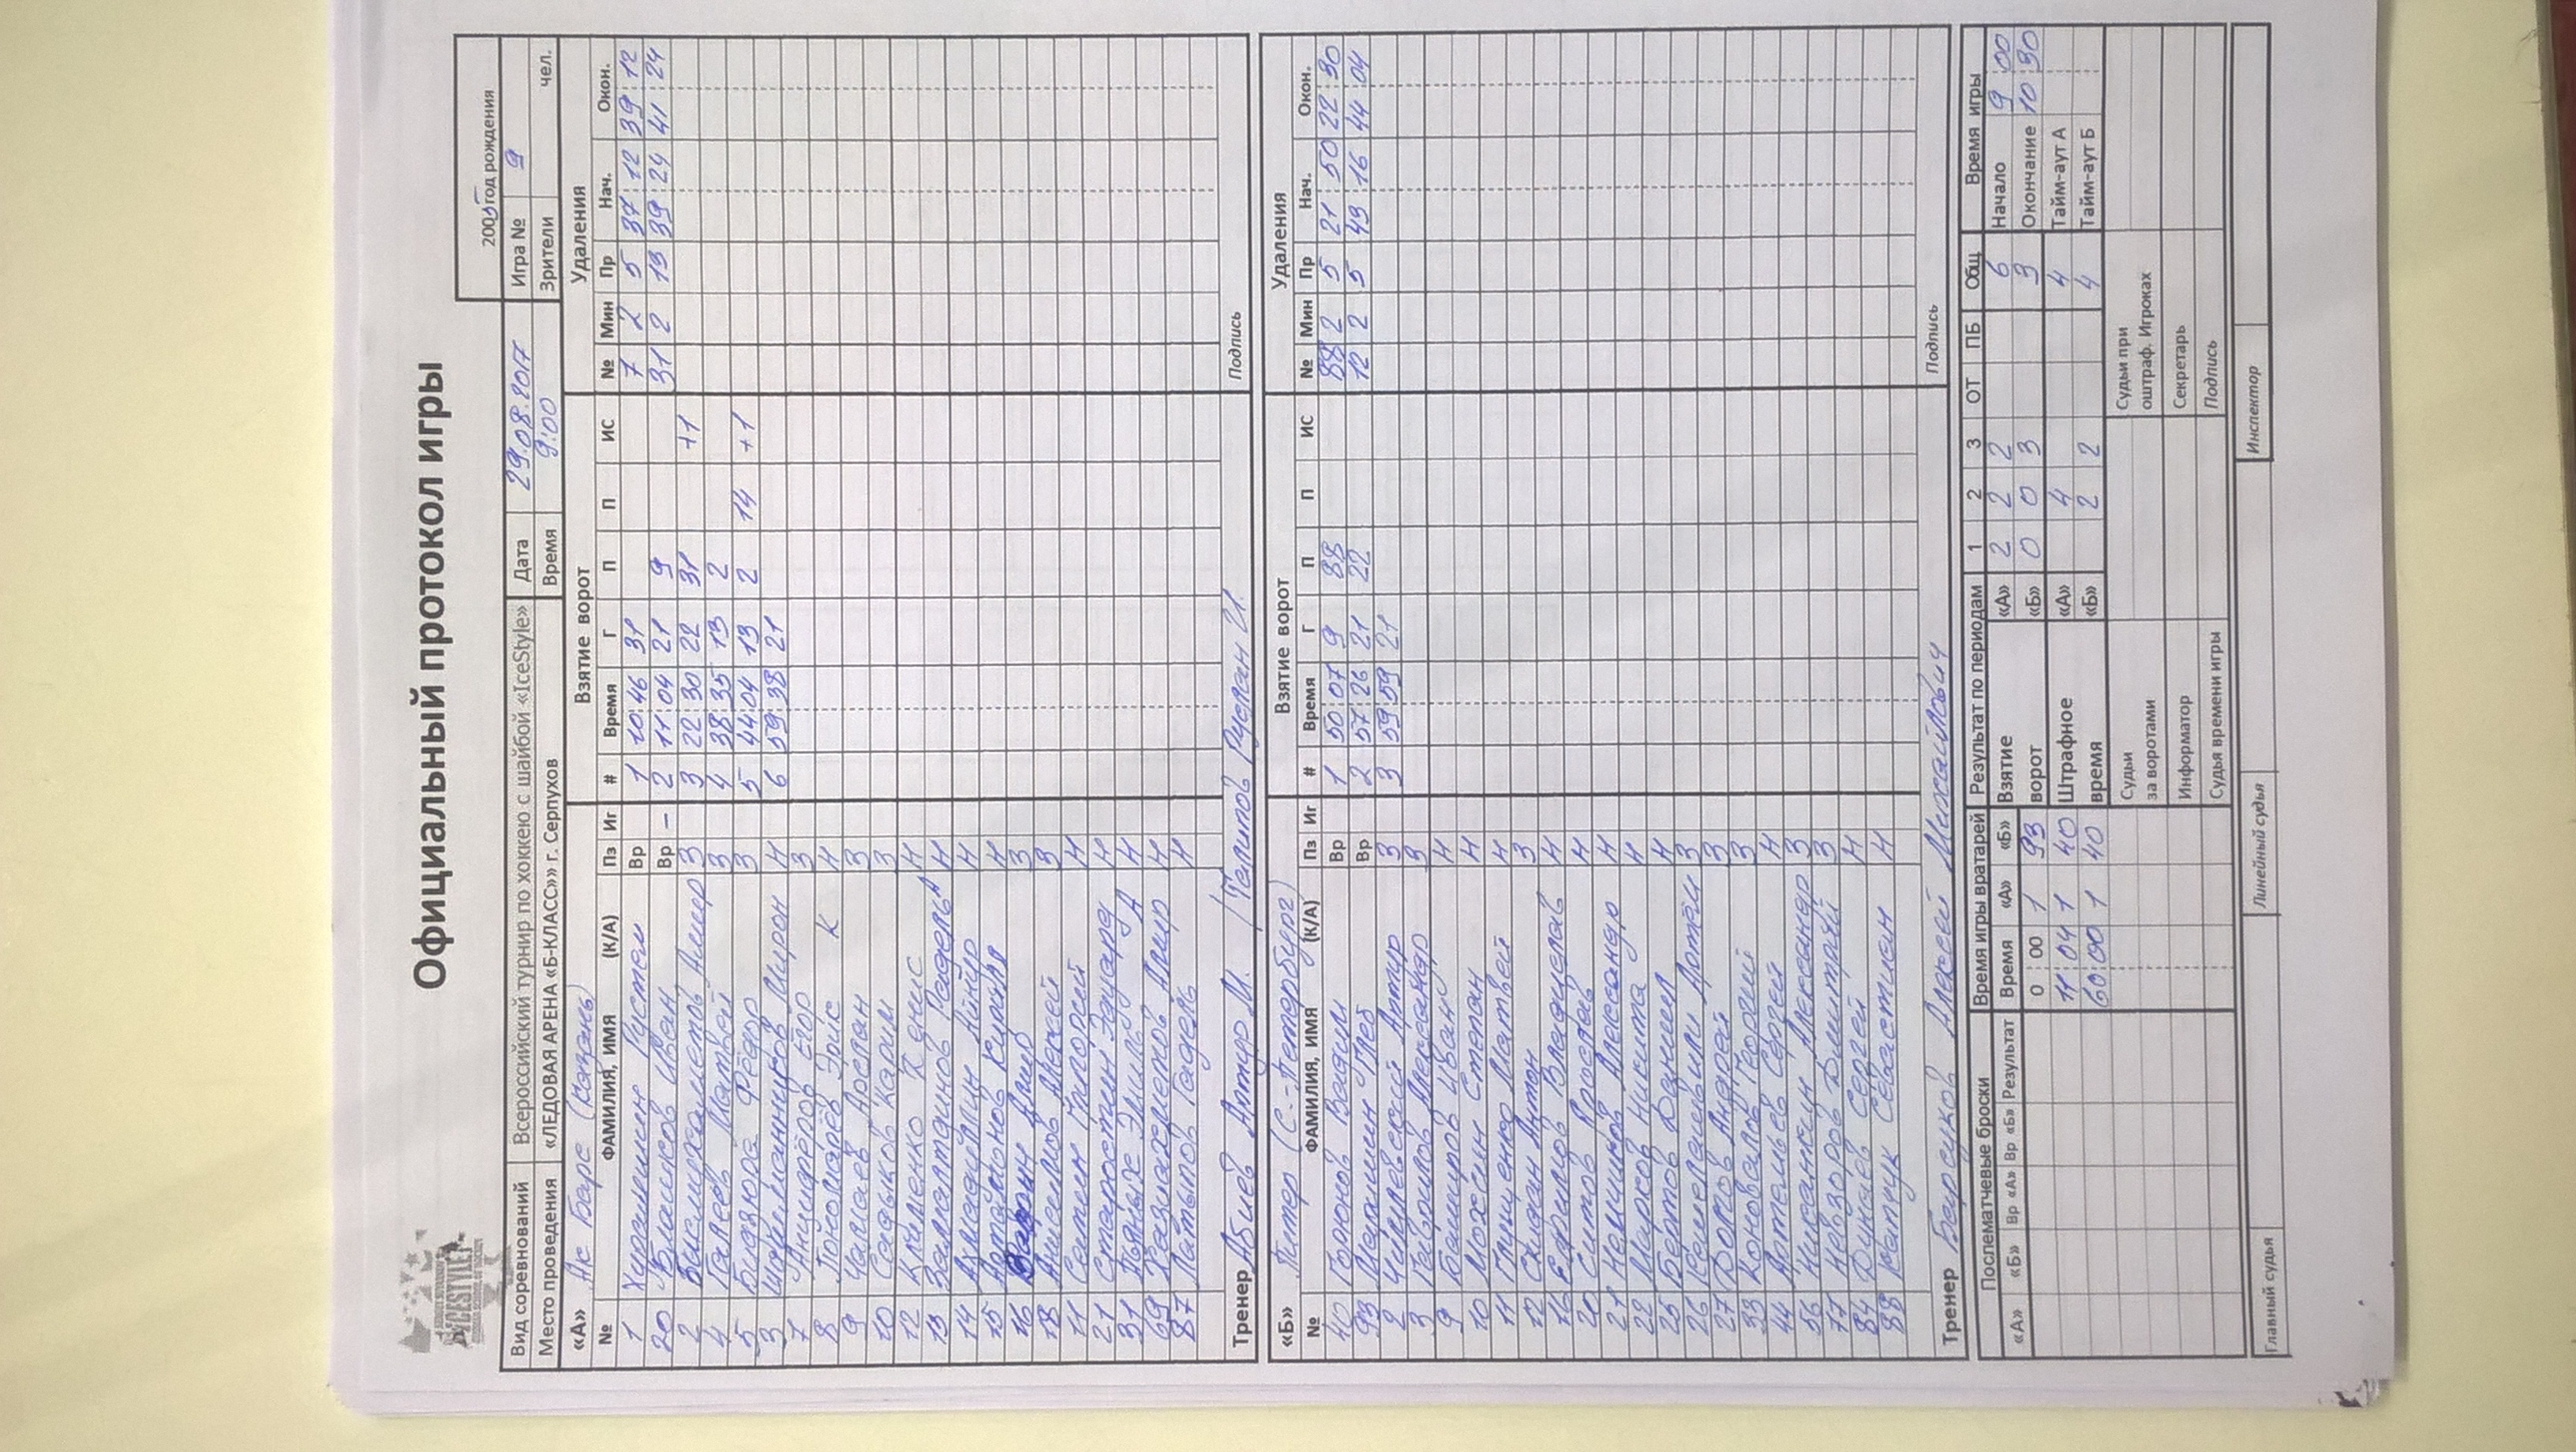 Официальный протокол игры
2005 год рождения
Вид соревнований Всероссийский турнир по хоккею с шайбой «IceStyle» Дата 29.08.2017 Игра № 9
Место проведения «ЛЕДОВАЯ АРЕНА «Б-КЛАСС»» г. Серпухов Время 9:00 Зрители чел.
«А» Ак Барс (Казань) Взятие ворот Удаления
№ ФАМИЛИЯ, ИМЯ (К/А) Пз Иг # Время Г П П ИС № Мин Пр Нач. Окон.
1 Рустем Вр 1 10:46 31 7 2 5 37:12 39:12
20 Власков Иван Вр – 2 11:04 21 9 31 2 13 39:24 41:24
2 Бисмухаметов Амир З 3 22:30 22 31 +1
4 Галеев Матвей З 4 38:35 13 2
5 Бидзюра Фёдор З 5 44:04 13 2 14 +1
3 Мирон Н 6 59:38 21
7 Анциферов Егор З
8 Эрис К Н
9 Чапаев Арслан З
10 Садыков Карим З
12 Клименко Денис Н
13 Залялтдинов Радель А Н
14 Айнур Н
15 Артамонов Кирилл Н
16 Алиб З
18 Анисимов Алексей З
11 Сетин Григорий Н
21 Старостин Эдуард Н
31 Эмиль А Н
69 Хазиахметов Амир Н
87 Латыпов Гадель Н
Тренер Абиев Артур М. / Гелипов Руслан И. Подпись
«Б» Питер (С.-Петербург) Взятие ворот Удаления
№ ФАМИЛИЯ, ИМЯ (К/А) Пз Иг # Время Г П П ИС № Мин Пр Нач. Окон.
40 Горюнов Вадим Вр 1 50:07 9 88 88 2 5 21:50 22:30
93 Глеб Вр 2 57:26 21 22 12 2 5 43:16 44:04
2 Чилевский Артур З 3 59:59 21
3 Гаврилов Александр З
9 Баширов Иван Н
10 Мохсин Степан Н
11 Глущенко Матвей Н
12 Скидан Антон З
16 Ефримов Владислав Н
20 Ситов Ярослав Н
21 Немшилов Александр Н
22 Марков Никита Н
25 Бертов Даниил Н
26 Гемелашвили Дотти З
27 Долгов Андрей З
33 Коновалов Георгий З
44 Артемьев Сергей Н
56 Никсанкин Александр З
77 Невзоров Дмитрий З
84 Дунаев Сергей Н
88 Катрук Севастиан Н
Тренер Барсуков Алексей Михайлович Подпись
Послематчевые броски Время игры вратарей Результат по периодам 1 2 3 ОТ ПБ Общ Время игры
«А» «Б» Вр «А» Вр «Б» Результат Время «А» «Б» Взятие «А» 2 2 2 6 Начало 9 00
0 00 1 93 ворот «Б» 0 0 3 3 Окончание 10 30
11 04 1 40 Штрафное «А» 4 4 Тайм-аут А
60:00 1 40 время «Б» 2 2 4 Тайм-аут Б
Судьи за воротами Судьи при оштраф. Игроках
Информатор Секретарь
Судья времени игры Подпись
Главный судья Линейный судья Инспектор